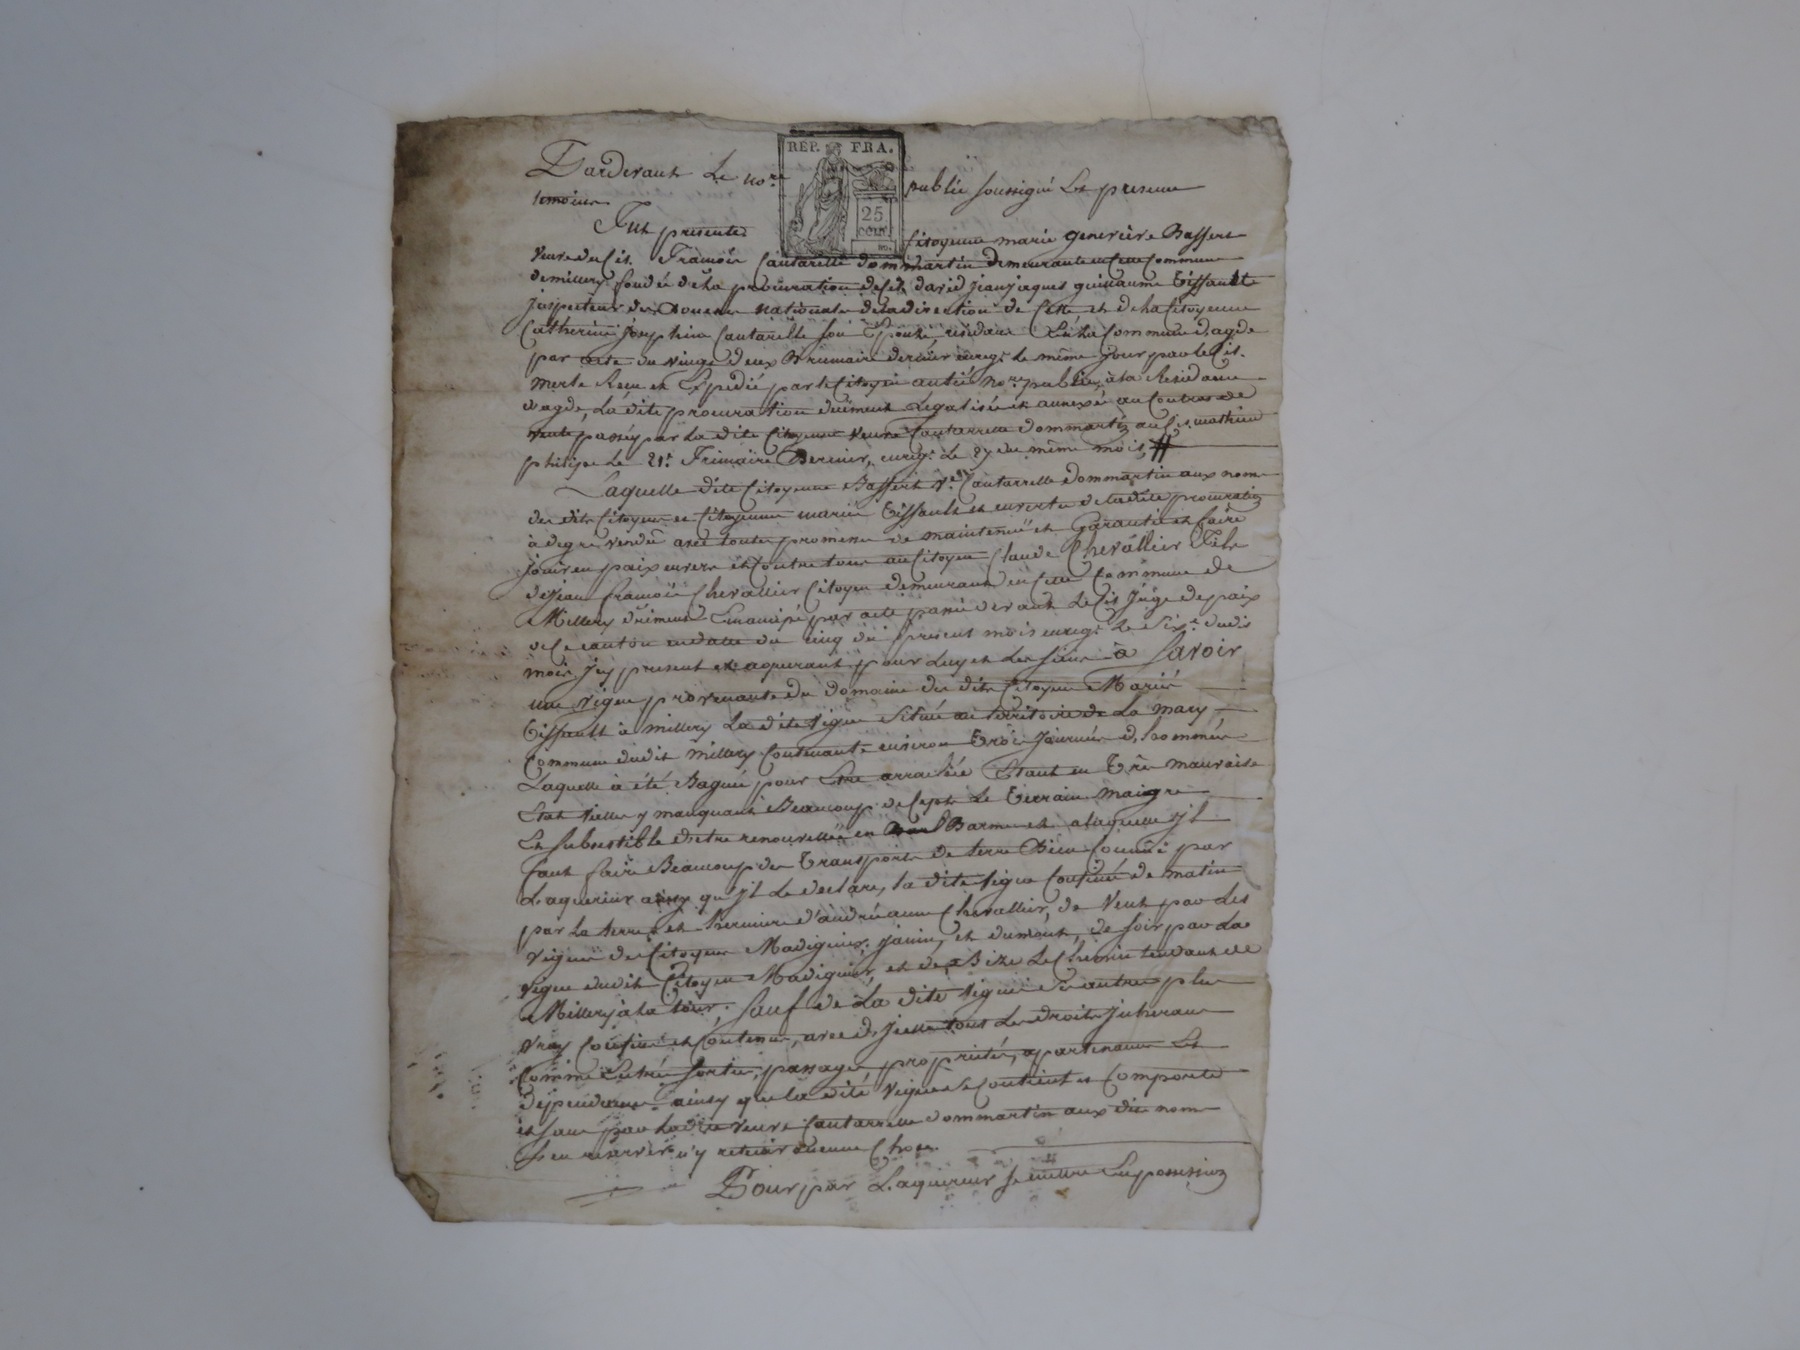 RÉP. FRA.
25
CENT.
Pardevant Le no.re public soussigné Et presence
temoins
Fut presente Citoyenne marie genevieve Bassere
veuve du Cit. François Cantarelle dommartin demeurante en cette Commune
de millery fondée de La procuration de Cit. david jean jaques guillaume Tissault
jnspecteur des Douanes nationale de la direction de Cette et de ha Citoyenne
Catherine josephine Cantarelle son Epouse, residans En ha Commune d'agde
par acte du vingt deux Brumaire dernier enreg.é le même jour par le Cit.
merle Recu et Expedié par le Citoyen no.re public, à la Residance
d'agde, La dite procuration duëment Legalisée et annexée au Contrat de
vente passéy par La dite Citoyenne veuve Cantarrelle dommartin au Cit. mathieu
philipe Le 21.e Frimaire Dernier, enreg.é Le 27 du même mois, #
Laquelle dite Citoyenne Bassere V.e Cantarrelle dommartin aux noms
des dits Citoyens et Citoyenne mariés Tissault et en vertu de la dite procuration
à de gré vendu avec toutes promesses de maintenuë et Garantie et faire
jouir en paix envers et Contre tous au Citoyen Claude Chevallier Fils
de jean françois Chevallier Citoyen demeurant en Cette Commune de
Millery duëment Emancipé par acte passé devant Le Cit. Juge de paix
de Ce canton en datte du cinq du present mois enreg.é Le Six.e dudit
mois, jcy present et aquerant pour Luy et Les siens à Savoir
une vigne provenante du domaine des dits Citoyens Mariés
Tissault à millery La dite vigne Située au territoire de La mary,
Commune dudit millery Contenante environ Trois journées d'hommes
Laquelle à été Baguée pour Etre arrachée Etant en Très mauvaise
Etat vielle y manquant Beaucoup de Ceps Le Terrain maigre
Et Subsestible d'etre renouvellée en Barme et a laquelle jl
faut faire Beaucoup de Transports de terre Bien Connuë par
L'aquereur ainsy qu'jl Le declare, la dite vigne Confinée de matin
par La terre et hermire d'andré anne Chevallier, de Vent par Les
vignes des Citoyens Madignier, janin, et dumont, de Soir par La
vigne dudit Citoyen Madignier, et de Bize Le Chemin tendant de
Millery à la tour; Sauf de La dite vigne Ses autres plus
vray Confins et Contenus, avec d'jcelle tous Les droits jnherans
Comme Entrée Sortie, passages, proprietés, apartenances Et
Dependances ainsy que la dite vigne se Contient et Comporte
et sans par ladite veuve Cantarrelle dommartin aux dits noms
S'en reserver n'y retenir aucune Chose.
Pour par L'aquereur se mettre En possession